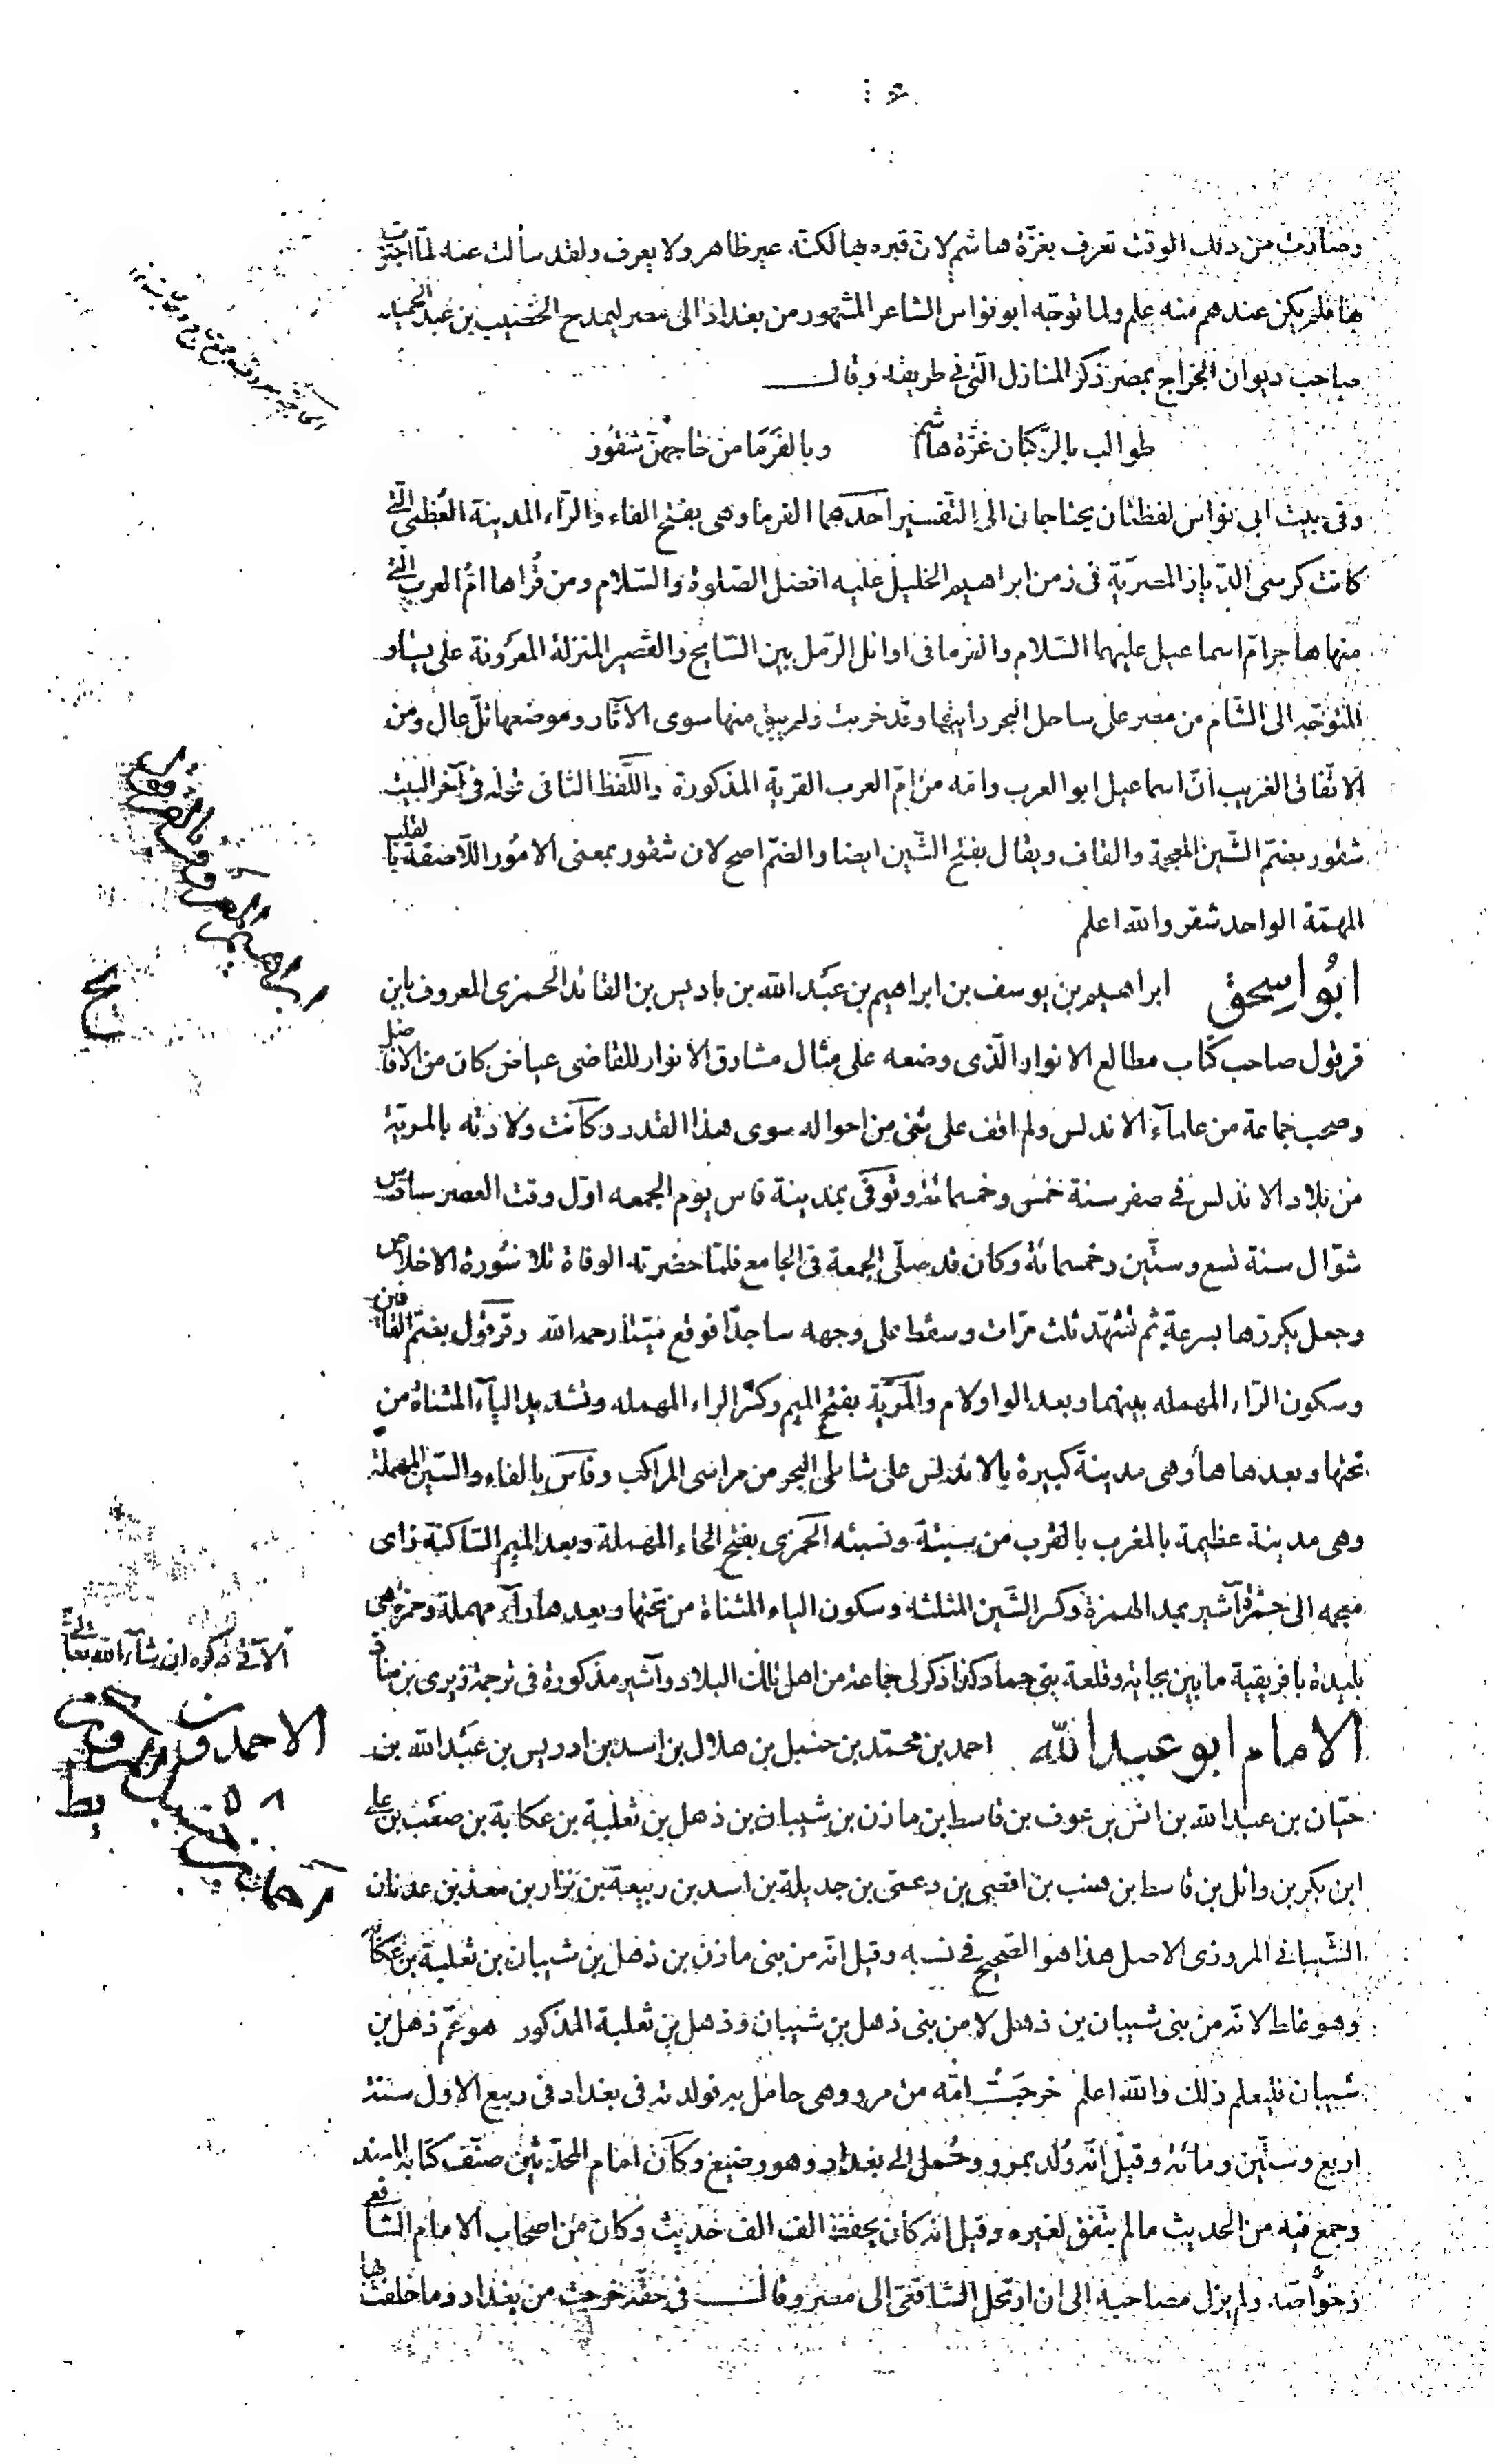 وصارت من ذلك الوقت تعرف بغزّة هاشم لانّ قبره بها لكنّه غير ظاهر ولا يعرف ولقد سألت عنه لمّا اجتزت
بها فلم يكن عندهم منه علم ولما توجّه ابو نواس الشاعر المشهور من بغداد الى مصر ليمدح الخصيب بن عبد الحميد
صاحب ديوان الخراج بمصر ذكر المنازل الّتى فى طريقه وقال
طوالب بالرّكبان غزّة هاشم وبالفَرَمَا من حاجهنّ شقُور
وفى بيت ابى نواس لفظتان يحتاجان الى التّفسير احدهما الفرما وهى بفتح الفاء والرّاء المدينة العُظمى الّتى
كانت كرسى الدّيار المصريّة فى زمن ابراهيم الخليل عليه افضل الصّلوة والسّلام ومن قُراها امّ العرب الّتى
منها هاجر امّ اسماعيل عليهما السّلام والفرما فى اوائل الرّمل بين السّايح والقصير المنزلة المعروفة على يسار
المتوجّه الى الشّام من مصر على ساحل البحر رأيتها وقد خربت ولم يبق منها سوى الآثار وموضعها تلّ عال ومن
الاتّفاق الغريب انّ اسماعيل ابو العرب وامّه من امّ العرب القرية المذكورة واللّفظ الثانى قوله فى آخر البيت
شقور بضمّ الشّين المعجمة والقاف ويقال بفتح الشّين ايضا والضمّ اصح لان شقور بمعنى الامور اللّاصقة بالقلب
المهمّة الواحد شقر والله اعلم
ابُو اسِحق ابراهيم بن يوسف بن ابراهيم بن عبد الله بن باديس بن القائد الحمزى المعروف بابن
قرقول صاحب كتاب مطالع الانوار الّذى وضعه على مثال مشارق الانوار للقاضى عياض كان من الافاضل
وصحب جماعة من علماء الاندلس ولم اقف على شئ من احواله سوى هذا القدر وكانت ولادته بالمريّة
من بلاد الاندلس فى صفر سنة خمس وخمسمائة وتوفى بمدينة فاس يوم الجمعه اوّل وقت العصر سادس
شوّال سنة تسع وستّين وخمسمائة وكان قد صلّى الجمعة فى الجامع فلمّا حضرته الوفاة تلا سُورة الاخلاص
وجعل يكررها بسرعة ثم تشهّد ثلث مرّات وسقط على وجهه ساجدًا فوقع ميّتا رحمه الله وقرقول بضمّ القافين
وسكون الرّاء المهمله بينهما وبعد الواو لام والمَرِيّة بفتح الميم وكسر الراء المهمله وتشديد الياء المثناة من
تحتها وبعدها هاء وهى مدينة كبيرة بالاندلس على شاطى البحر من مراسى المراكب وفاس بالفاء والسّين المهملة
وهى مدينة عظيمة بالمغرب بالقرب من سبتة ونسبته الحمزى بفتح الحاء المهملة وبعد الميم السّاكنة زاى
معجمه الى حمزة آشير بمد الهمزة وكسر الشّين المثلثه وسكون الياء المثناة من تحتها وبعدها رآء مهملة وحمزة هى
بليدة بافريقية ما بين بجاية وقلعة بنى حماد كذا ذكر لى جماعة من اهل تلك البلاد وآشير مذكورة فى ترجمة زيرى بن مناد
الآتى ذكره ان شآء الله تعالى
الامام ابو عبد الله احمد بن محمّد بن حنبل بن هلال بن اسد بن ادريس بن عبد الله بن
حيّان بن عبد الله بن انس بن عوف بن قاسط بن مازن بن شيبان بن ذهل بن ثعلبة بن عكابة بن صعب بن على
ابن بكر بن وائل بن قاسط بن هنب بن افصى بن دعمى بن جديلة بن اسد بن ربيعة بن نزار بن معد بن عدنان
الشّيبانى المروزى الاصل هذا هو الصّحيح فى نسبه وقيل انّه من بنى مازن بن ذهل بن شيبان بن ثعلبة بن عكابه
وهو غلط لانّه من بنى شيبان بن ذهل لا من بنى ذهل بن شيبان وذهل بن ثعلبة المذكور هو عمّ ذهل بن
شيبان فليعلم ذلك والله اعلم خرجت امّه من مرو وهى حامل به فولدته فى بغداد فى ربيع الاول سنة
اربع وستّين ومائة وقيل انّه وُلد بمرو وحُمل الى بغداد وهو رضيع وكان امام المحدّثين صنّف كتابه المسند
وجمع فيه من الحديث ما لم يتّفق لغيره وقيل انه كان يحفظ الف الف حديث وكان من اصحاب الامام الشافعى
وخواصّه ولم يزل مصاحبه الى ان ارتحل الشافعى الى مصر وقال فى حقّه خرجت من بغداد وما خلفت بها